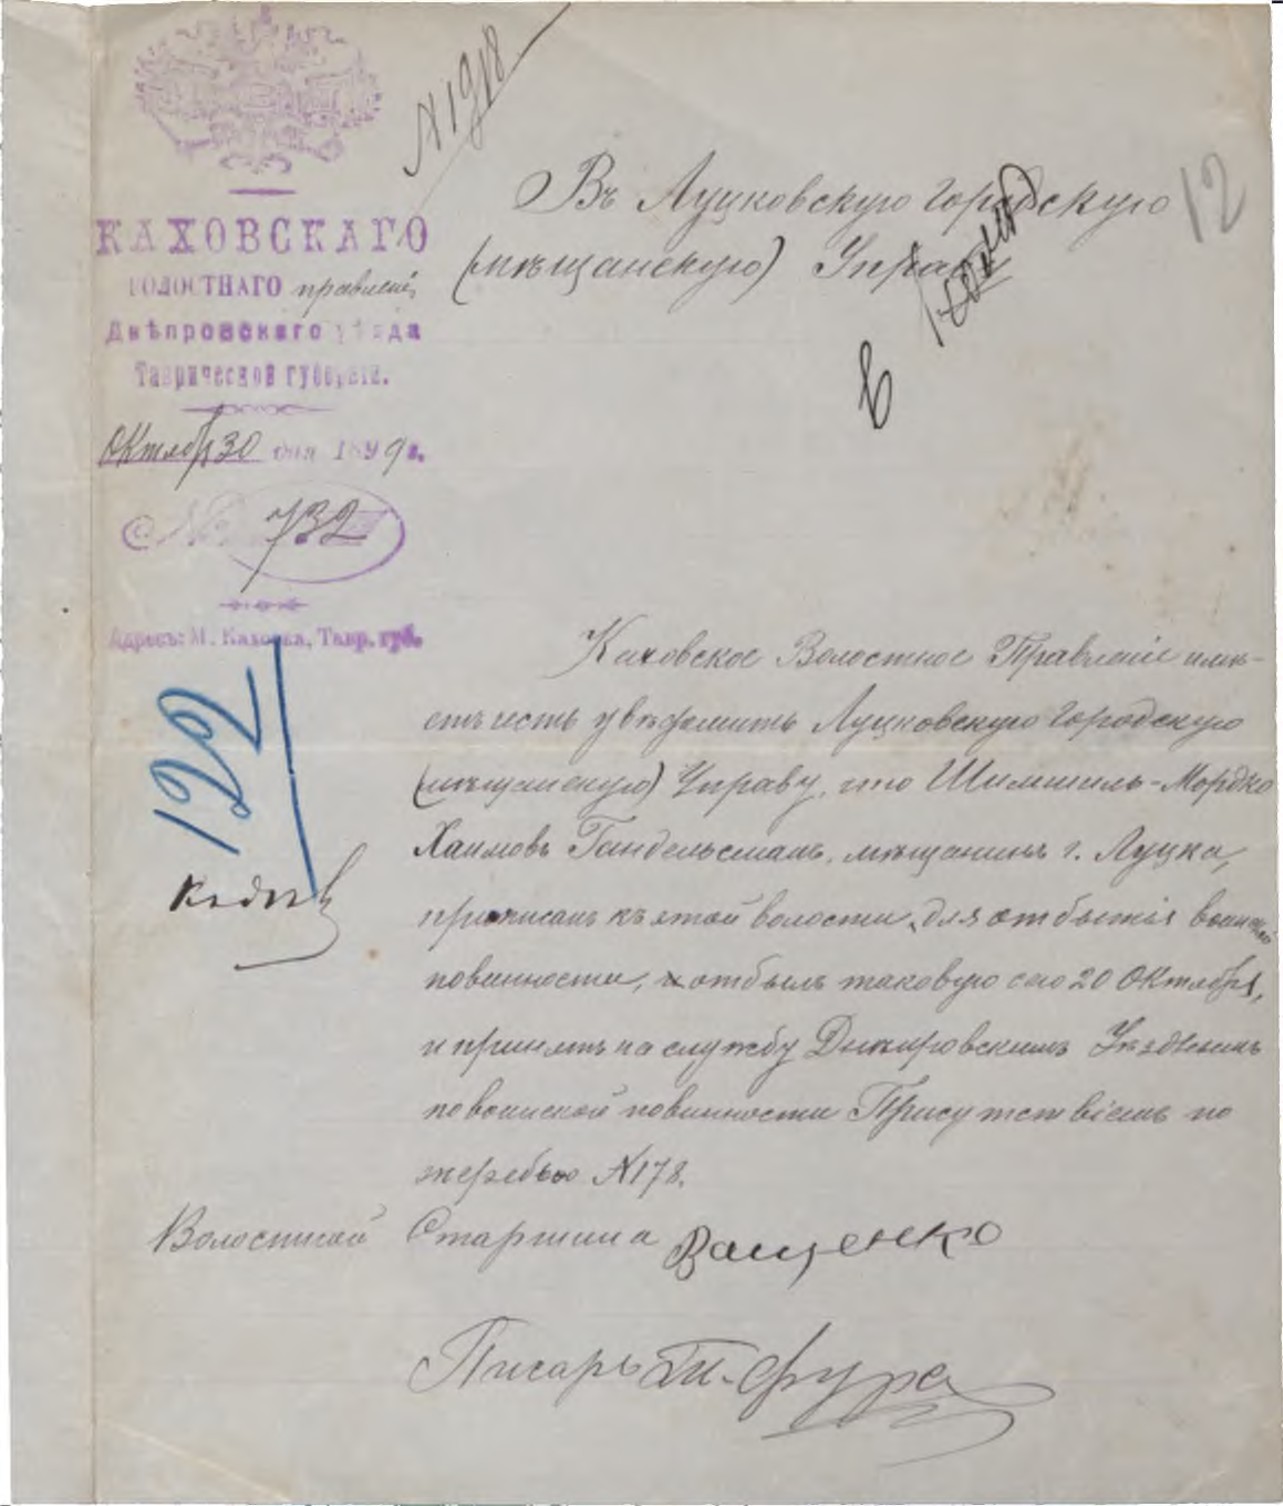 N 1918
12
КАХОВСКАГО
ВОЛОСТНАГО правленія
Днѣпровскаго уѣзда
Таврической губерніи.
Октября 30 дня 1899 г.
№ 732
Адресъ: М. Каховка, Тавр. губ.
Въ Луцковскую Городскую
(мѣщанскую) Управу
122
Каховское Волостное Правленіе имѣ-
етъ честь увѣдомить Луцковскую Городскую
(мѣщанскую) Управу, что Шимшиль-Мордко
Хаимовъ Гандельсманъ, мѣщанинъ г. Луцка,
приписанъ къ этой волости, для отбытія воинской
повинности, отбылъ таковую сего 20 Октября,
и принятъ на службу Днѣпровскимъ Уѣзднымъ
по воинской повинности Присутствіемъ по
жеребью N 178.
Волостной Старшина Ващенко
Писарь П. Фура